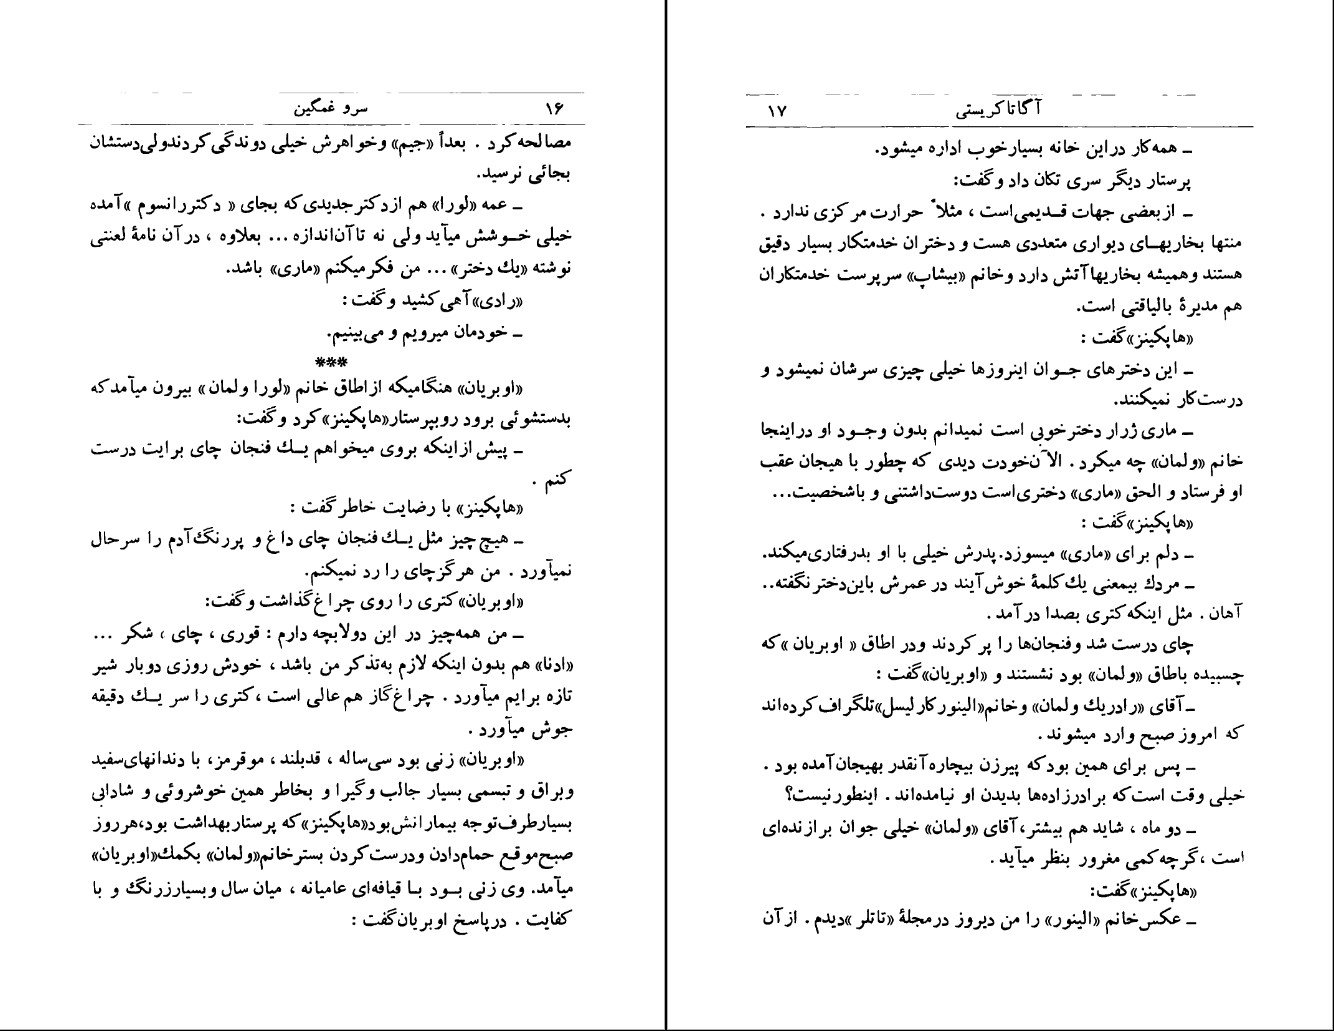 ۱۶ سرو غمگین
مصالحه‌کرد . بعداً «جیم» وخواهرش خیلی دوندگی‌کردندولی‌دستشان
بجائی نرسید.
ــ عمه «لورا» هم ازدکترجدیدی‌که بجای « دکتررانسوم »آمده
خیلی خــوشش میآید ولی نه تاآن‌اندازه ... بعلاوه ، درآن نامهٔ لعنتی
نوشته «یك دختر» ... من فکرمیکنم «ماری» باشد.
«رادی»آهی‌کشید وگفت :
ــ خودمان میرویم و می‌بینیم.
***
«اوبریان» هنگامیکه ازاطاق خانم «لورا ولمان» بیرون میآمدکه
بدستشوئی برود روبپرستار«هاپکینز»کرد وگفت:
ــ پیش ازاینکه بروی میخواهم یــك فنجان چای برایت درست
کنم .
«هاپکینز» با رضایت خاطرگفت :
ــ هیچ‌چیز مثل یــك فنجان چای داغ و پررنگ‌آدم را سرحال
نمیآورد . من هرگزچای را رد نمیکنم.
«اوبریان»کتری را روی چراغ‌گذاشت وگفت:
ــ من همه‌چیز در این دولابچه دارم : قوری ، چای ، شکر ...
«ادنا» هم بدون اینکه لازم به‌تذکر من باشد ، خودش روزی دوبار شیر
تازه برایم میآورد . چراغ‌گاز هم‌عالی است ،کتری را سر یــك دقیقه
جوش میآورد .
«اوبریان» زنی بود سی‌ساله ، قدبلند ، موقرمز، با دندانهای‌سفید
وبراق و تبسمی بسیار جالب وگیرا و بخاطر همین خوشروئی و شادابی
بسیارطرف‌توجه بیمارانش‌بود«هاپکینز»که پرستاربهداشت بود،هرروز
صبح‌موقـع حمام‌دادن ودرست‌کردن بسترخانم«ولمان» بکمك«اوبریان»
میآمد. وی زنی بــود بـا قیافه‌ای عامیانه ، میان سال وبسیارزرنگ و با
کفایت . درپاسخ اوبریان‌گفت :
آگاتاکریستی ۱۷
ــ همه‌کار دراین خانه بسیارخوب اداره میشود.
پرستار دیگر سری تکان داد وگفت:
ــ ازبعضی جهات قــدیمی‌است ، مثلاً حرارت مرکزی ندارد .
منتها بخاریهــای دیواری متعددی هست و دختران خدمتکار بسیار دقیق
هستند وهمیشه بخاریهاآتش دارد وخانم «بیشاپ» سرپرست خدمتکاران
هم مدیرهٔ بالیاقتی است.
«هاپکینز»گفت :
ــ این دخترهای جــوان اینروزها خیلی چیزی سرشان نمیشود و
درست‌کار نمیکنند.
ــ ماری ژرار دخترخوبی است نمیدانم بدون وجــود او دراینجا
خانم «ولمان» چه میکرد . الآن‌خودت دیدی که چطور با هیجان عقب
او فرستاد و الحق «ماری» دختری‌است دوست‌داشتنی و باشخصیت...
«هاپکینز»گفت :
ــ دلم برای «ماری» میسوزد.پدرش خیلی با او بدرفتاری‌میکند.
ــ مردك بیمعنی یك‌کلمهٔ خوش‌آیند در عمرش باین‌دخترنگفته..
آهان . مثل اینکه‌کتری بصدا درآمد .
چای درست شد وفنجان‌ها را پرکردند ودر اطاق « اوبریان »که
چسبیده باطاق «ولمان» بود نشستند و «اوبریان»گفت :
ــ آقای «رادریك ولمان» وخانم«الینورکارلیسل»تلگراف‌کرده‌اند
که امروز صبح وارد میشوند .
ــ پس برای همین بودکه پیرزن بیچاره‌آنقدر بهیجان‌آمده بود .
خیلی وقت است‌که برادرزاده‌ها بدیدن او نیامده‌اند . اینطورنیست؟
ــ دو ماه ، شاید هم بیشتر،آقای «ولمان» خیلی جوان برازنده‌ای
است ،گرچه‌کمی مغرور بنظر میآید .
«هاپکینز»گفت:
ــ عکس‌خانم «الینور» را من دیروز درمجلهٔ «تاتلر »دیدم . ازآن